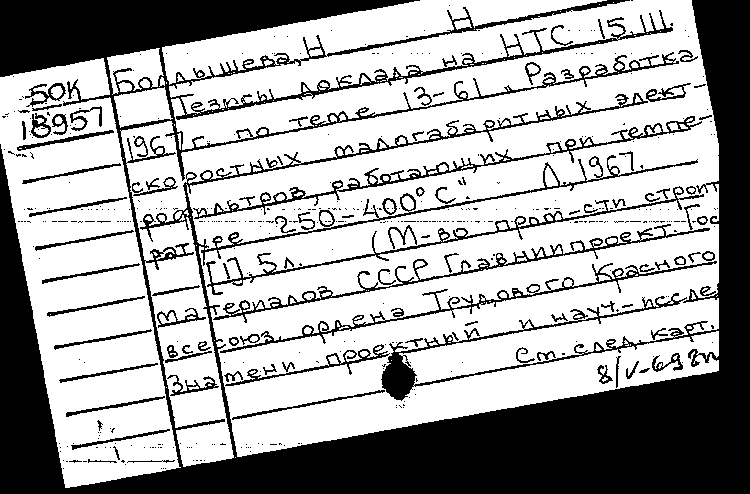 БОК
18957
Болдышева, Н Н
Тезисы доклада на НТС 15.III.
1967 г. по теме 13-61 „Разработка
скоростных малогабаритных элект-
рофильтров, работающих при темпе-
ратуре 250-400°С". Л., 1967.
[1], 5л. (М-во пром-сти строит
материалов СССР Главниипроект. Гос
всесоюз. ордена Трудового Красного
Знамени проектный и науч.-иссле
См. след. карт.
8/V-69